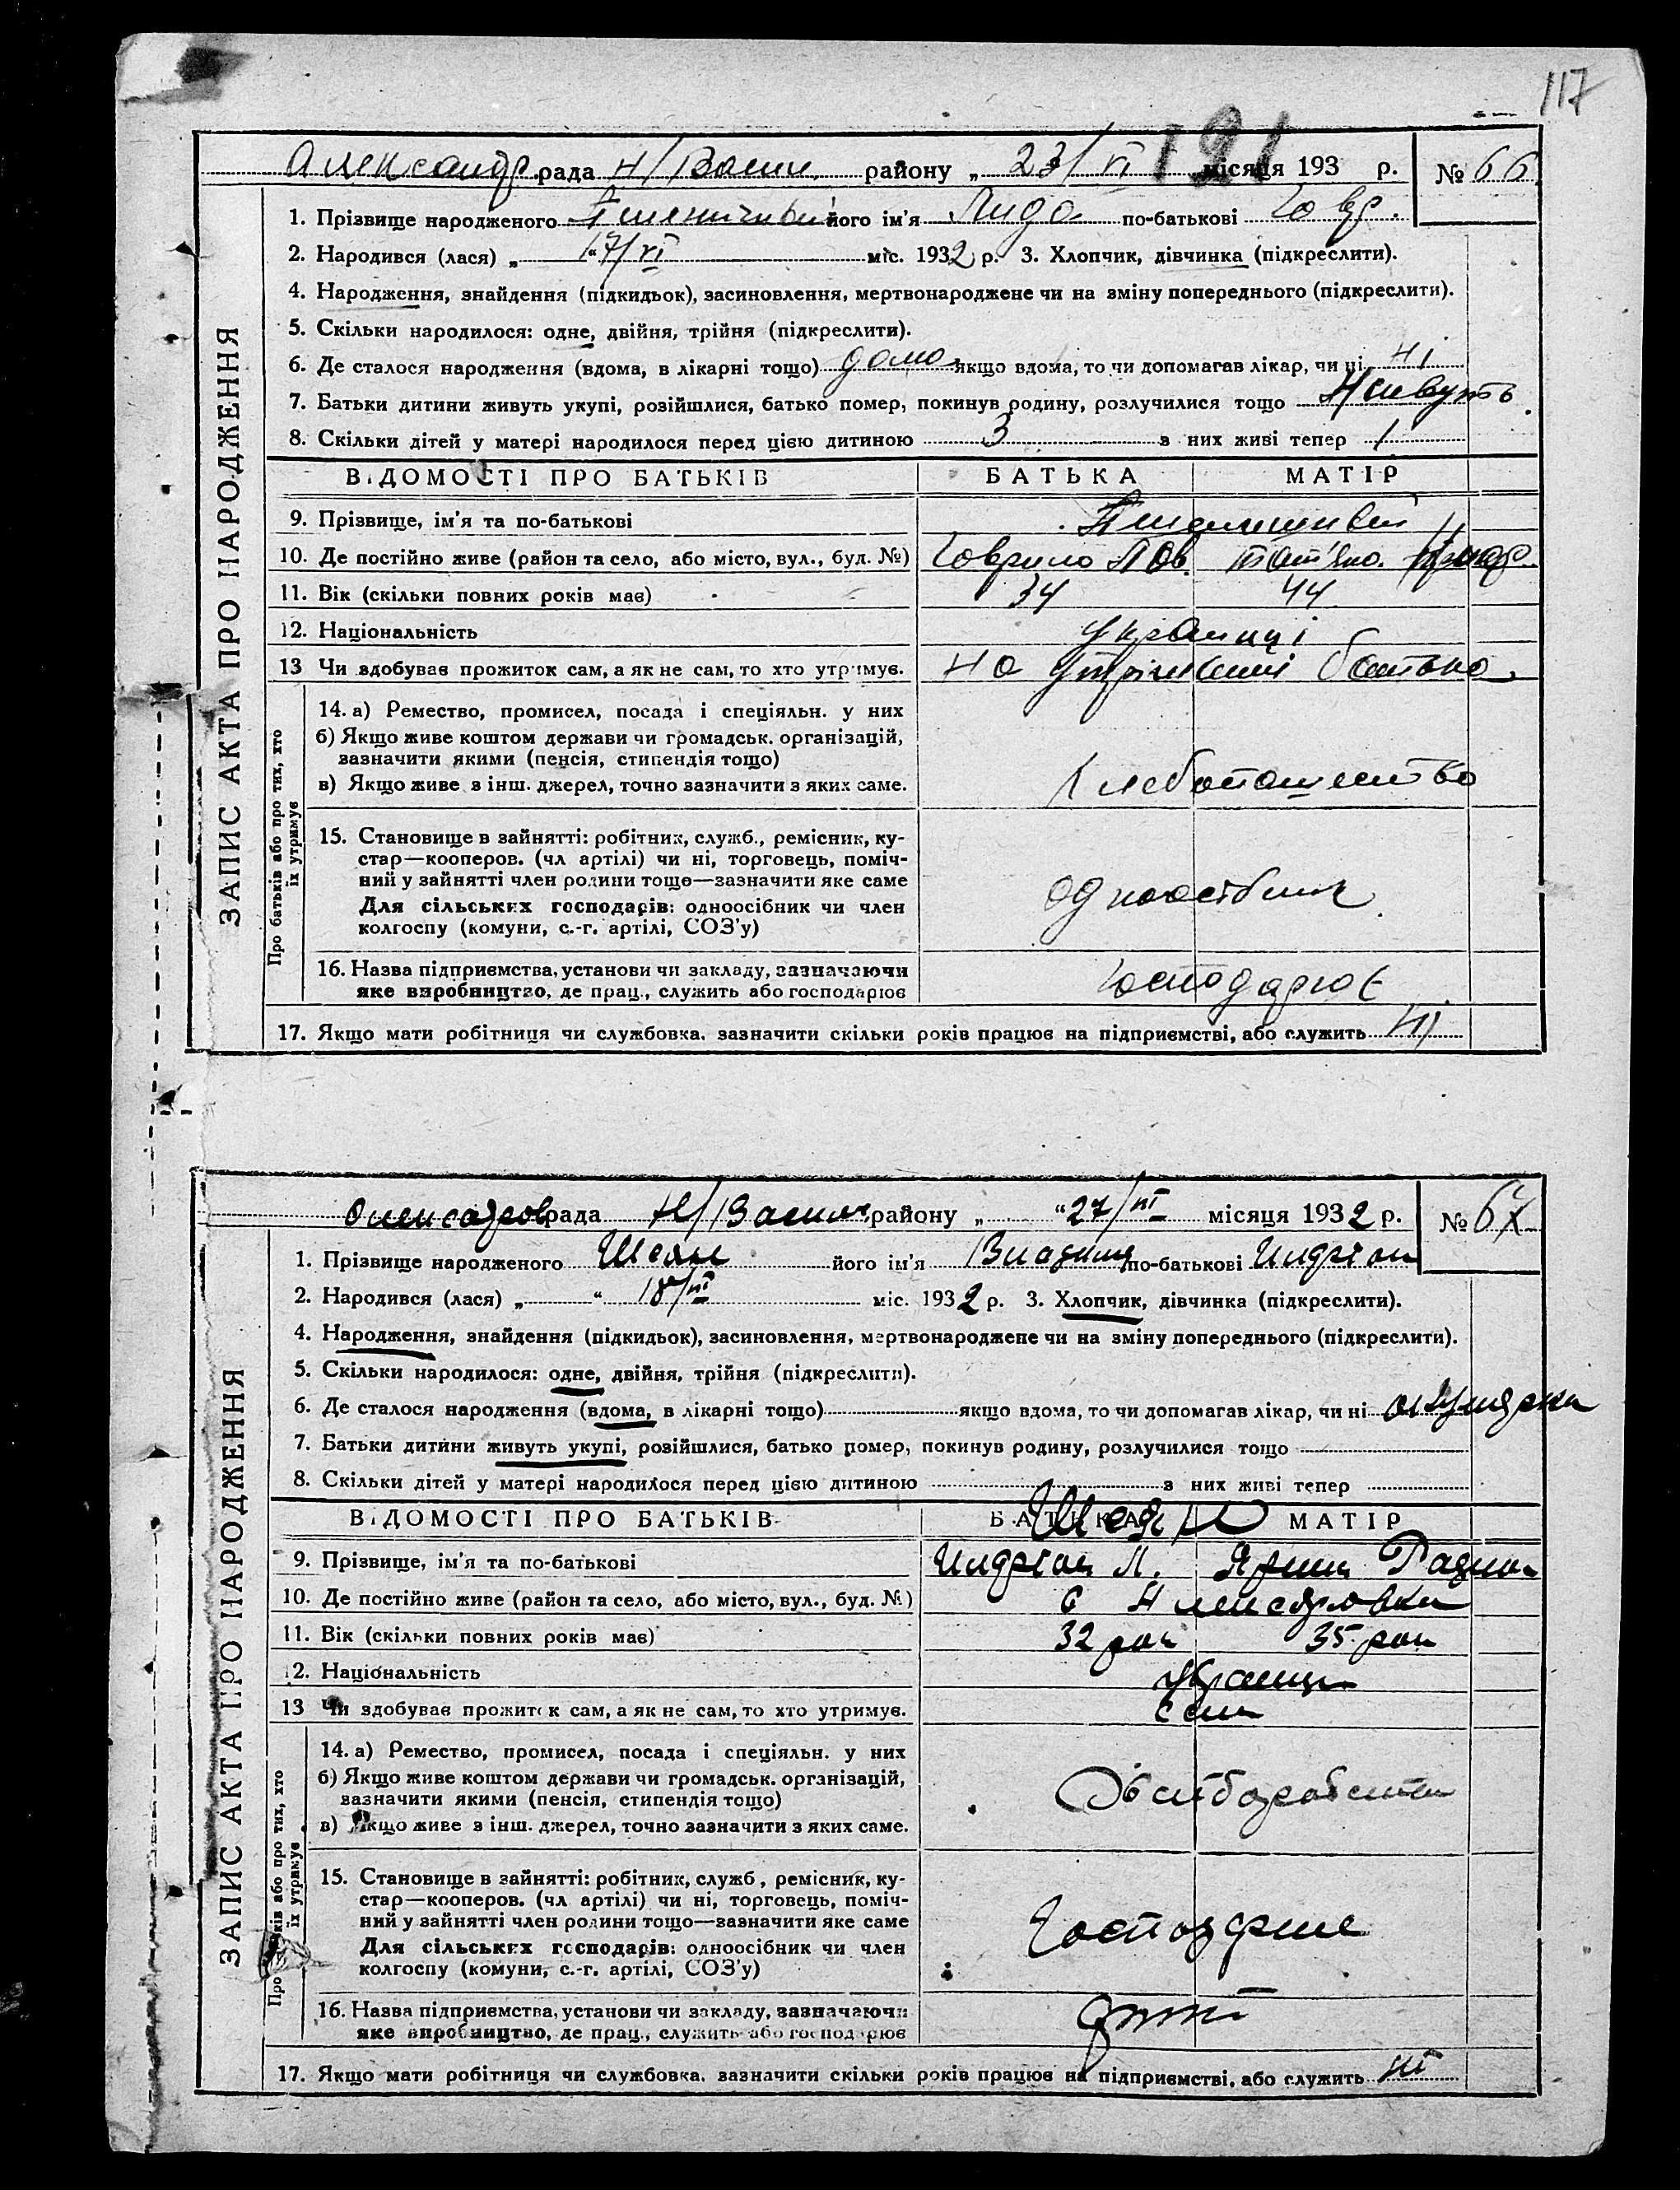 117
121
Александр. рада Н/Васил. району „ 23/VI місяця 193 р. № 66
1. Прізвище народженого його ім'я Лида по-батькові Гавр.
2. Народився (лася) „ “ 17/VI міс. 1932 р. 3. Хлопчик, дівчинка (підкреслити).
4. Народження, знайдення (підкидьок), засиновлення, мертвонароджене чи на зміну попереднього (підкреслити).
5. Скільки народилося: одне, двійня, трійня (підкреслити).
6. Де сталося народження (вдома, в лікарні тощо) дома якщо вдома, то чи допомагав лікар, чи ні ні
7. Батьки дитини живуть укупі, розійшлися, батько помер, покинув родину, розлучилися тощо живуть
8. Скільки дітей у матері народилося перед цією дитиною 3 з них живі тепер 1
ВІДОМОСТІ ПРО БАТЬКІВ БАТЬКА МАТІР
9. Прізвище, ім'я та по-батькові
10. Де постійно живе (район та село, або місто, вул., буд. №) Гаврило Пав. Тат'яна.
11. Вік (скільки повних років має) 34 44
12. Національність українці
13 Чи здобував прожиток сам, а як не сам, то хто утримує. на утріманні батька
14. а) Ремество, промисел, посада і спеціяльн. у них
б) Якщо живе коштом держави чи громадськ. організацій,
зазначити якими (пенсія, стипендія тощо)
в) Якщо живе з інш. джерел, точно зазначити з яких саме. Хлебопашество
15. Становище в зайнятті: робітник, служб., ремісник, ку-
стар—кооперов. (чл артілі) чи ні, торговець, поміч-
ний у зайнятті член родини тощо—зазначити яке саме
Для сільських господарів: одноосібник чи член
колгоспу (комуни, с.-г. артілі, СОЗ'у) одноосібник
16. Назва підприємства, установи чи закладу, зазначаючи
яке виробництво, де прац., служить або господарює господарює
17. Якщо мати робітниця чи службовка, зазначити скільки років працює на підприємстві, або служить ні
ЗАПИС АКТА ПРО НАРОДЖЕННЯ
Про батьків або про тих, хто
їх утримує
Олексадров рада Н/Васил. району „ “ 27/VI місяця 1932 р. № 67
1. Прізвище народженого Шеян його ім'я Владим по-батькові Индріан
2. Народився (лася) „ “ 18/VI міс. 1932 р. 3. Хлопчик, дівчинка (підкреслити).
4. Народження, знайдення (підкидьок), засиновлення, мертвонароджене чи на зміну попереднього (підкреслити).
5. Скільки народилося: одне, двійня, трійня (підкреслити).
6. Де сталося народження (вдома, в лікарні тощо) якщо вдома, то чи допомагав лікар, чи ні акушерка
7. Батьки дитини живуть укупі, розійшлися, батько помер, покинув родину, розлучилися тощо
8. Скільки дітей у матері народилося перед цією дитиною з них живі тепер
ВІДОМОСТІ ПРО БАТЬКІВ БАТЬКА МАТІР
Шеян
9. Прізвище, ім'я та по-батькові Индріан Л. Ярина Радион
10. Де постійно живе (район та село, або місто, вул., буд. №) с Алексдровка
11. Вік (скільки повних років має) 32 рок 35 рок
12. Національність українци
13 Чи здобував прожиток сам, а як не сам, то хто утримує. сам
14. а) Ремество, промисел, посада і спеціяльн. у них
б) Якщо живе коштом держави чи громадськ. організацій,
зазначити якими (пенсія, стипендія тощо)
в) Якщо живе з інш. джерел, точно зазначити з яких саме.
15. Становище в зайнятті: робітник, служб., ремісник, ку-
стар—кооперов. (чл артілі) чи ні, торговець, поміч-
ний у зайнятті член родини тощо—зазначити яке саме
Для сільських господарів: одноосібник чи член
колгоспу (комуни, с.-г. артілі, СОЗ'у)
16. Назва підприємства, установи чи закладу, зазначаючи
яке виробництво, де прац., служить або господарює
17. Якщо мати робітниця чи службовка, зазначити скільки років працює на підприємстві, або служить ні
ЗАПИС АКТА ПРО НАРОДЖЕННЯ
Про батьків або про тих, хто
їх утримує